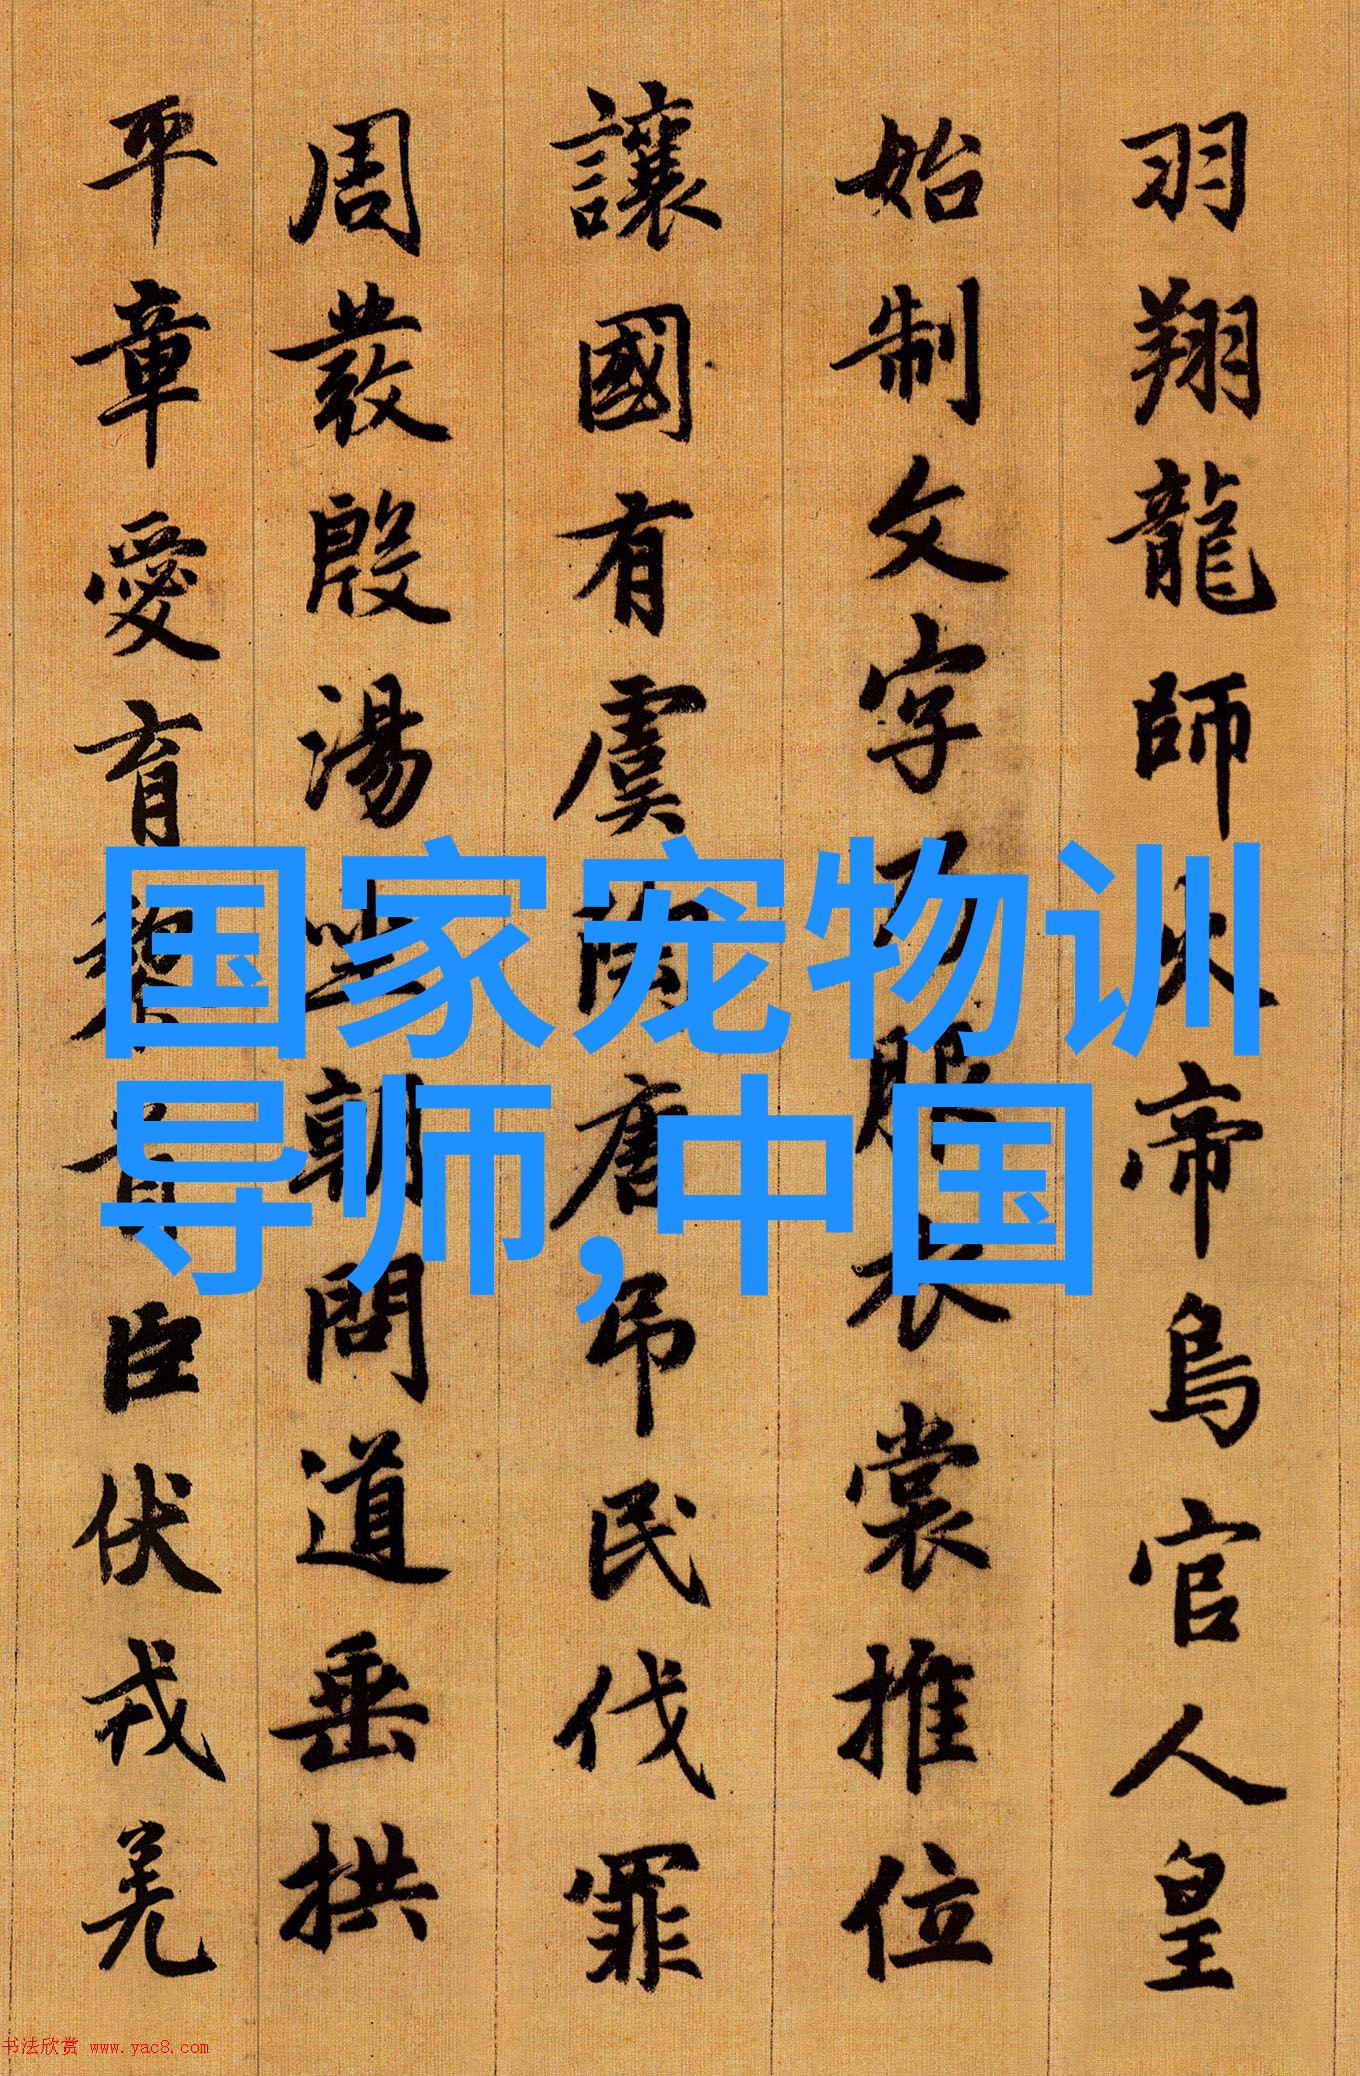 羽翔龍師火帝鳥官人皇
始制文字乃服衣裳推位
讓國有虞陶唐吊民伐罪
周發殷湯坐朝問道垂拱
平章愛育黎首臣伏戎羌
国家宠物训
导师,中国
书法欣赏 www.yac8.com